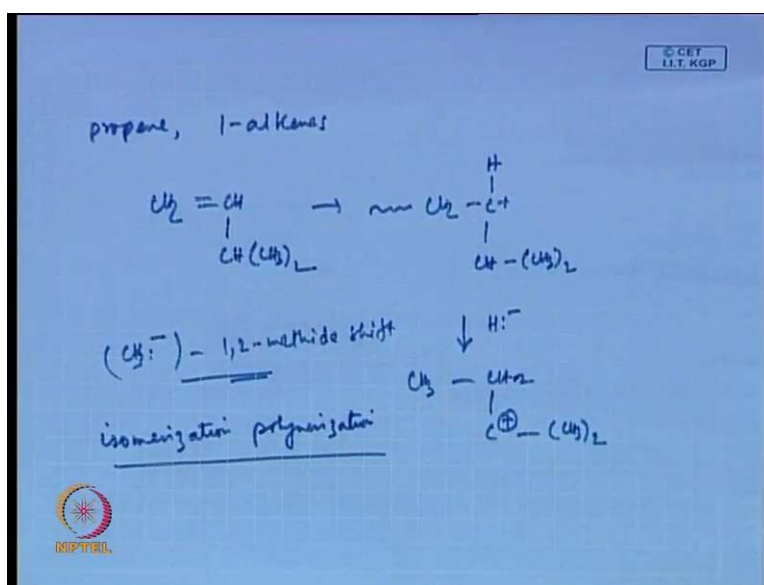 © CET
I.I.T. KGP
propene, 1-alkenes
CH2 = CH → ~~~ CH2 - C+
H
|
CH(CH3)2
|
CH - (CH3)2
(CH3:⁻) - 1,2-methide shift
↓ H:⁻
CH3 - CH2
|
C⊕ - (CH3)2
isomerization polymerization
NPTEL